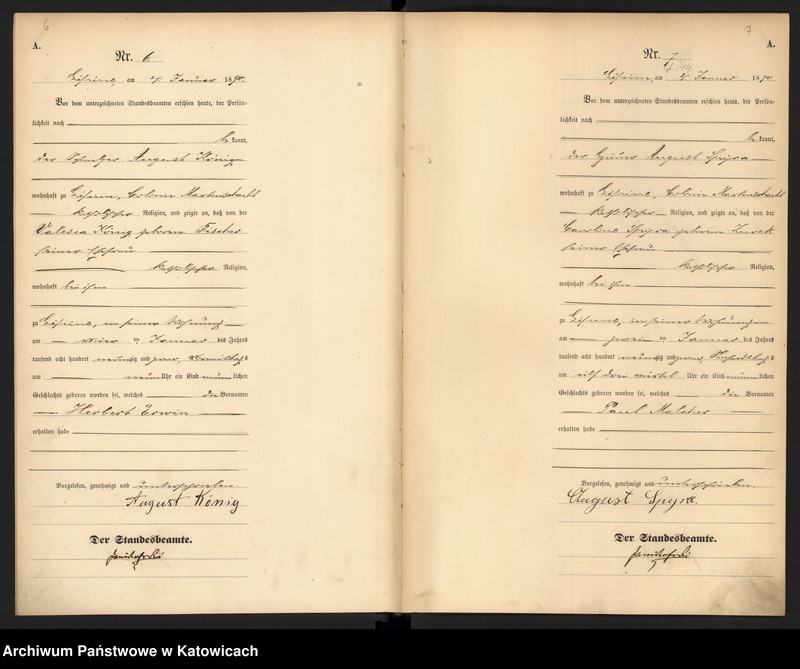 6
A.
Nr. 6
am 4. Januar 1890.
Vor dem unterzeichneten Standesbeamten erschien heute, der Persön-
lichkeit nach
be kannt,
der August König
wohnhaft zu Colonie Martinschacht
katholischer Religion, und zeigte an, daß von der
Valesca König geborene Fischer
seiner Ehefrau
katholischer Religion,
wohnhaft bei ihm
zu in seiner Wohnung
am Januar des Jahres
tausend acht hundert neunzig und zwar, Vormittags
um neun Uhr ein Kind männlichen
Geschlechts geboren worden sei, welches die Vornamen
Herbert Erwin
erhalten habe
Vorgelesen, genehmigt und unterschrieben.
August König
Der Standesbeamte.
7
A.
Nr. 7
am 4. Januar 1890
Vor dem unterzeichneten Standesbeamten erschien heute, der Persön-
lichkeit nach
be kannt,
der August Spyra
wohnhaft zu Colonie Martinschacht
katholischer Religion, und zeigte an, daß von der
Caroline Spyra geborene
seiner Ehefrau
katholischer Religion,
wohnhaft bei ihm
zu in seiner Wohnung
am zwei Januar des Jahres
tausend acht hundert neunzig und zwar,
um Uhr ein Kind männlichen
Geschlechts geboren worden sei, welches die Vornamen
Paul Malcher
erhalten habe
Vorgelesen, genehmigt und unterschrieben.
August Spyra.
Der Standesbeamte.
Archiwum Państwowe w Katowicach